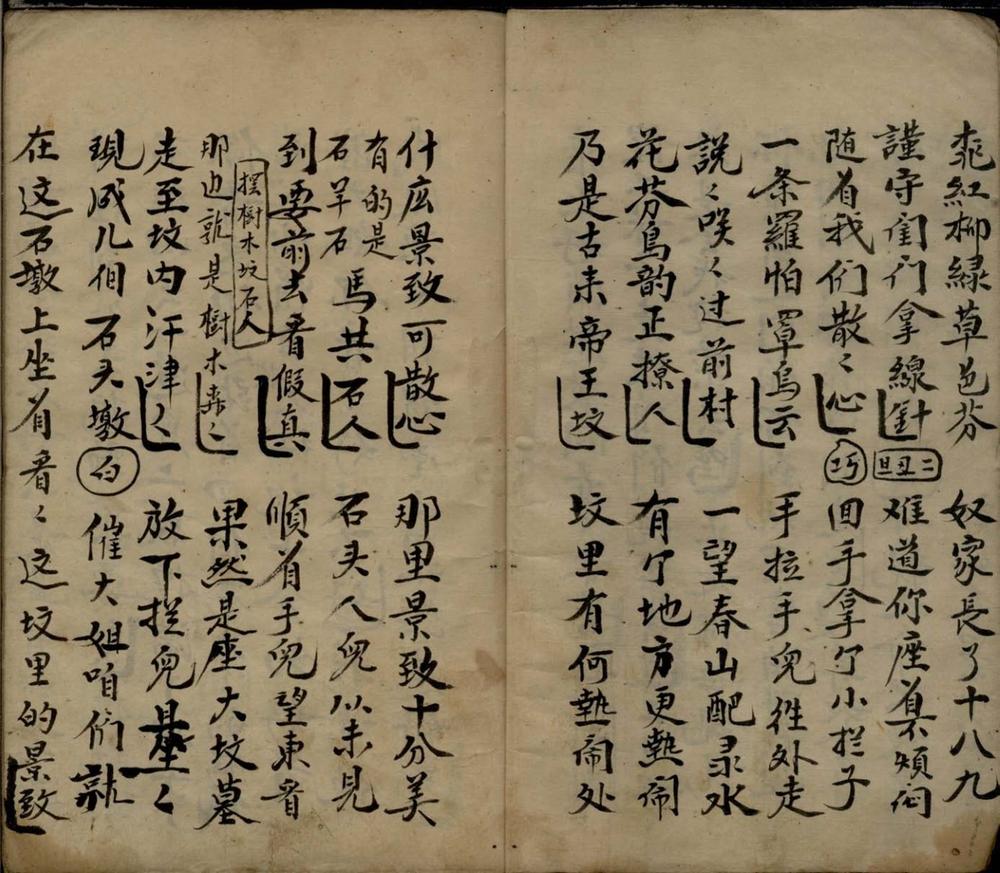 桃紅柳緑草色芬 奴家長了十八九
謹守閨门拿線針 二丑旦 难道你座着不煩闷
随着我们散〻心 巧 回手拿个小拦子
一条羅怕罩乌云 手拉手兒徃外走
説〻咲〻过前村 一望春山配录水
花芬鳥韵正撩人 有个地方更熱闹
乃是古来帝王坟 坟里有何熱闹处
什庅景致可散心 那里景致十分美
有的是石羊石馬共石人 石头人兒从未见
到要前去看假真 順着手兒望東看
摆樹木坟石人
那边就是樹木森〻 果然是座大坟墓
走至坟内汗津〻 放下拦兒坐一坐〻
現成儿個石头墩 白 催大姐咱们就
在这石墩上坐着看〻这坟里的景致